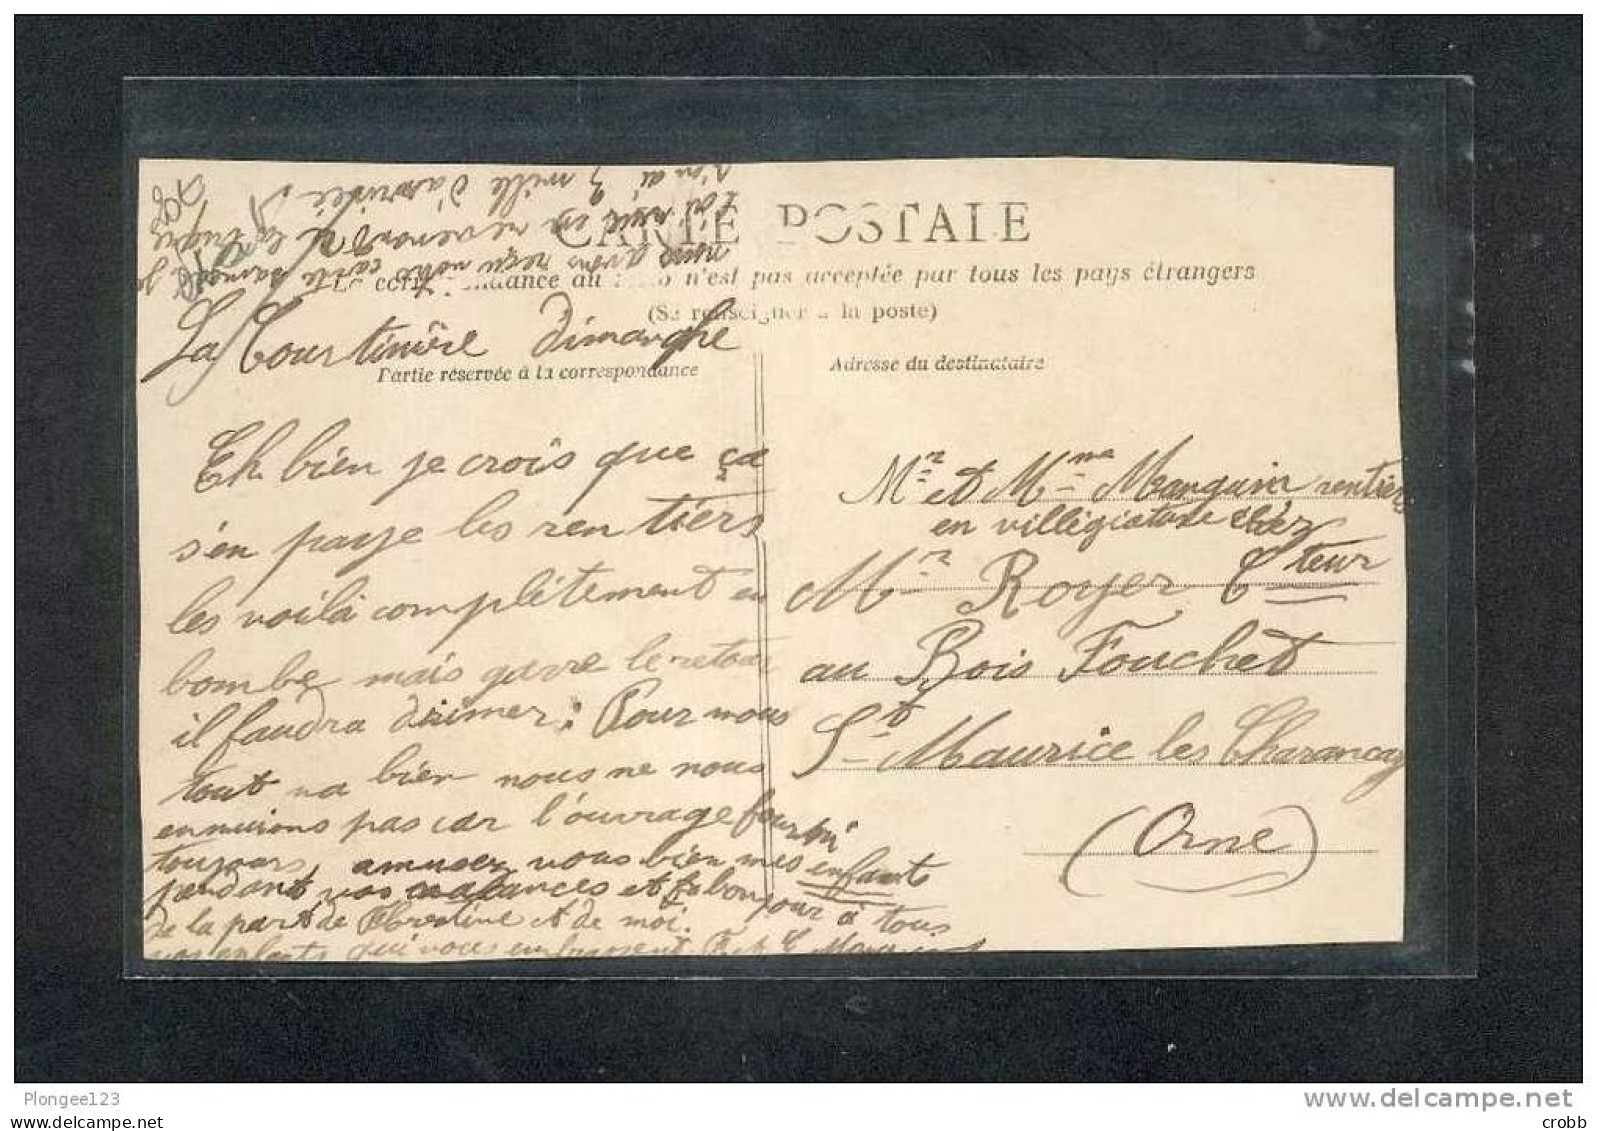 CARTE POSTALE
La correspondance au recto n'est pas acceptée par tous les pays étrangers
(Se renseigner à la poste)
nous avons reçu votre carte samedi je
n'en ai 3 mille d'assortis
La Courtinière dimanche
Partie réservée à la correspondance
Adresse du destinataire
Eh bien je crois que ça
s'en paye les rentiers
les voilà complètement en
bombe mais gare le retour
il faudra dîmer : Pour nous
tout va bien nous ne nous
ennuions pas car l'ouvrage fourmi
toujours, amusez vous bien mes enfants
pendant vos vacances et f bonjour à tous
de la part de Florestine et de moi.
vos enfants qui vous embrassent
Mr et Mme Manguin rentier
en villégiature chez
Mr Royer Cteur
au Bois Fouchet
St Maurice les Charancay
(Orne)
Plongee123
www.delcampe.net
crobb